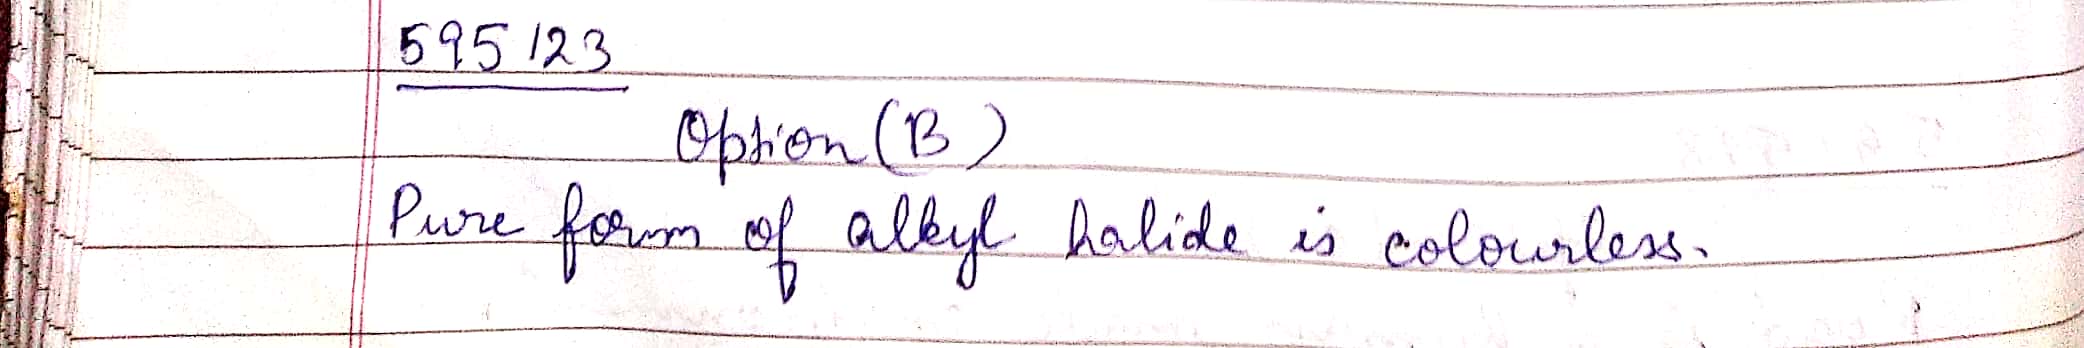 595123
Option (B)
Pure form of alkyl halide is colourless.